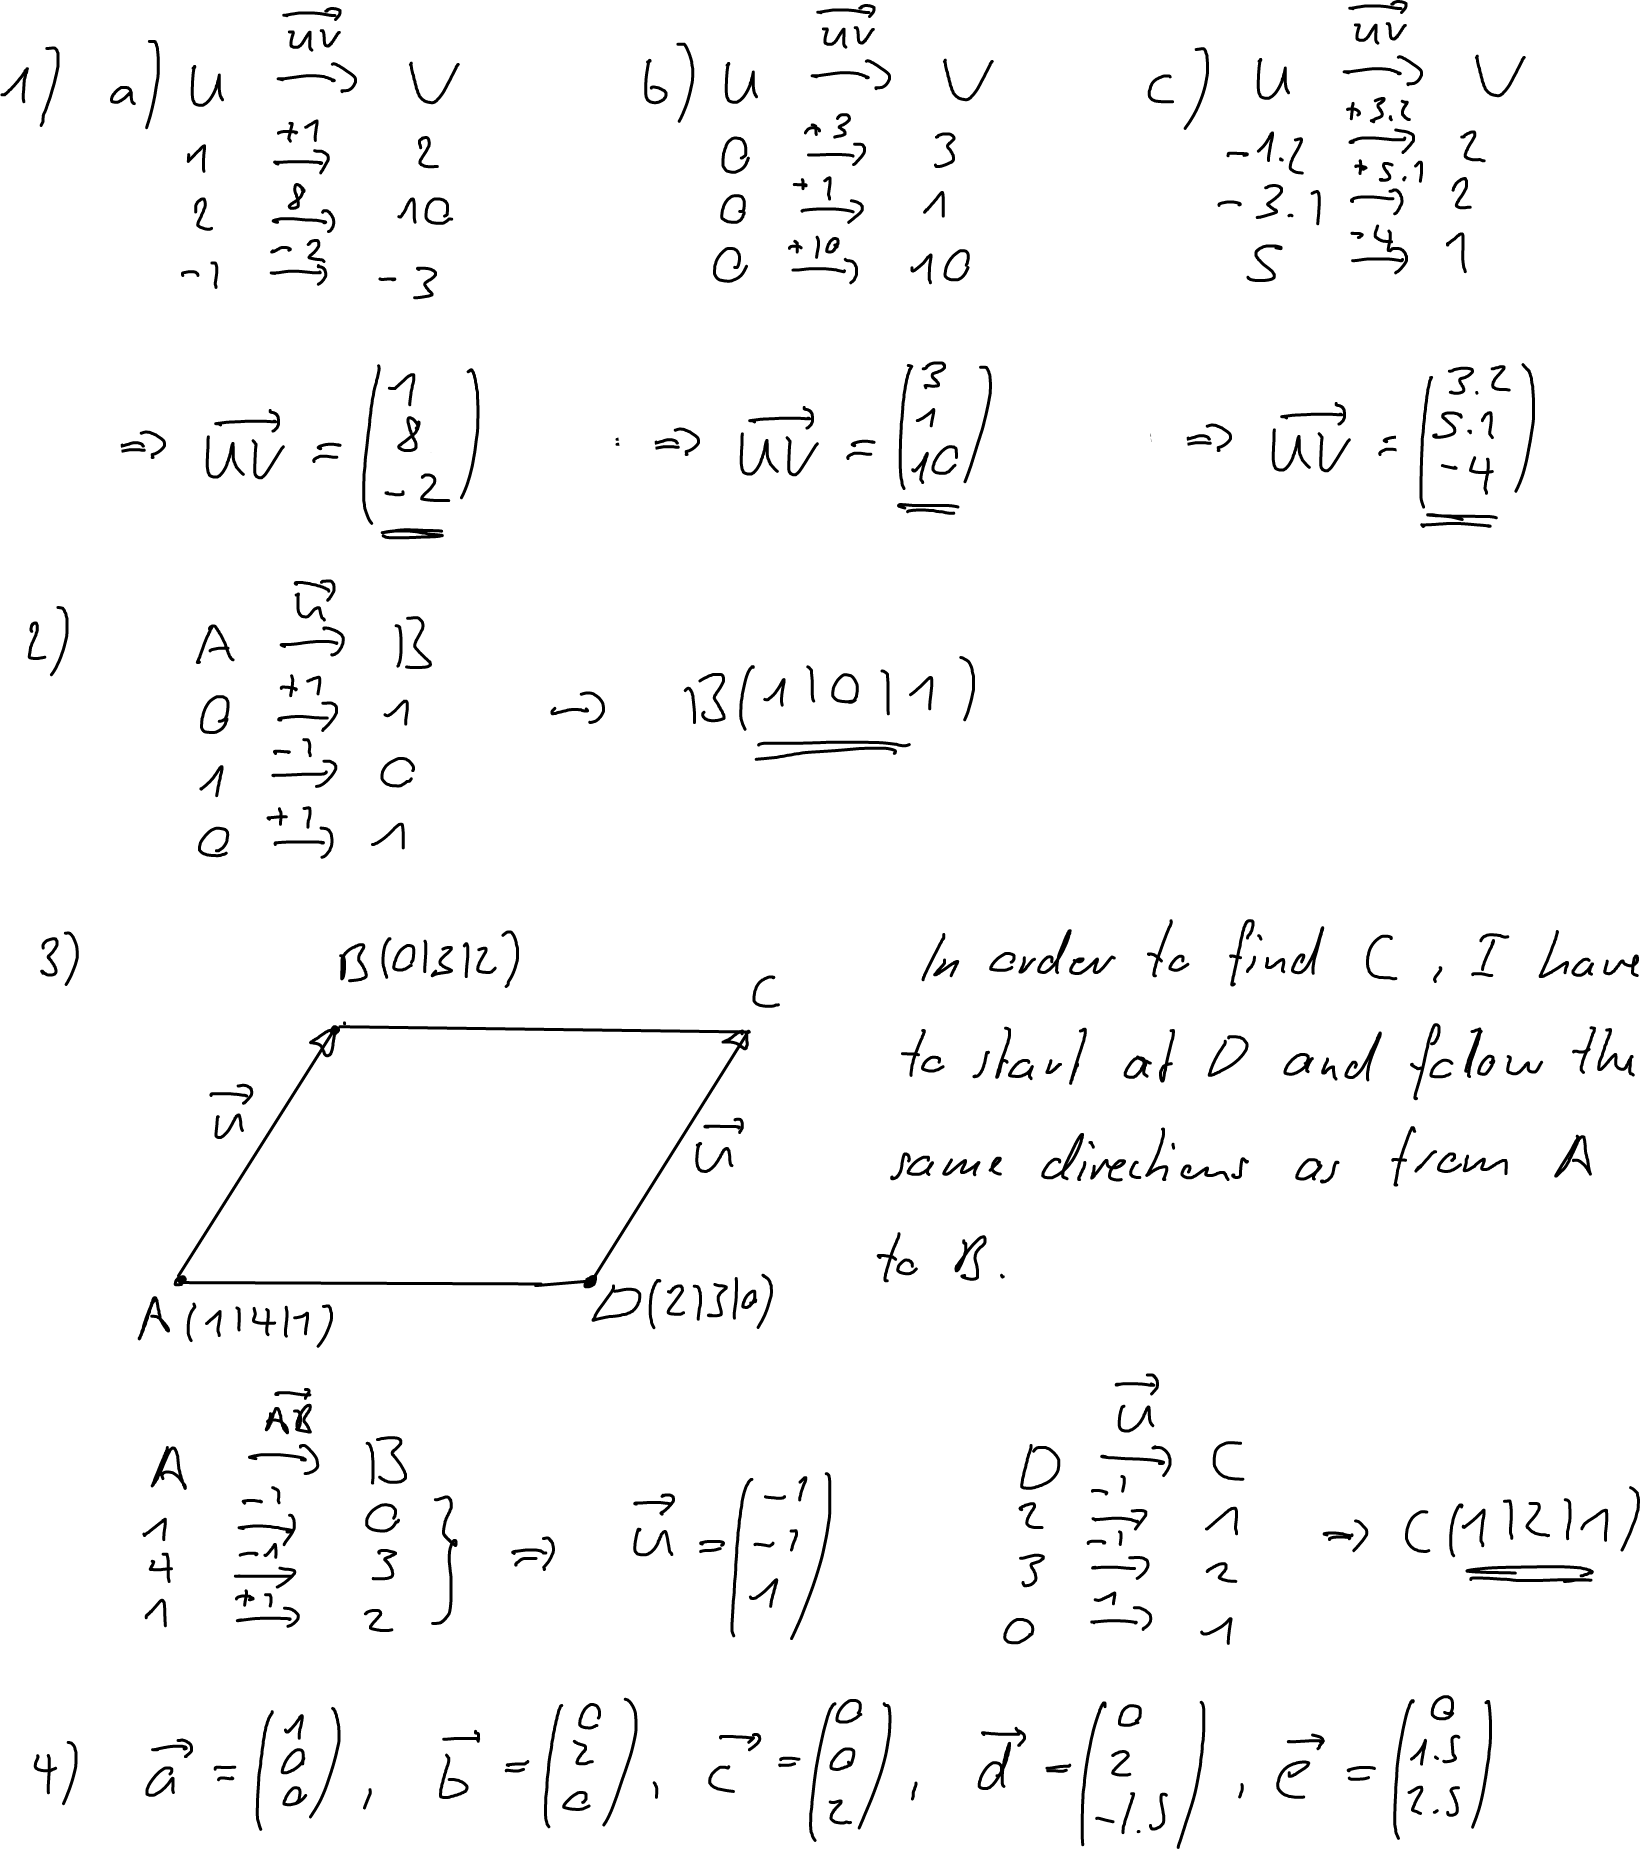 1) a) U $\xrightarrow{\overrightarrow{UV}}$ V
1 $\xrightarrow{+1}$ 2
2 $\xrightarrow{8}$ 10
-1 $\xrightarrow{-2}$ -3
⇒ $\overrightarrow{UV} = \begin{pmatrix} 1 \\ 8 \\ -2 \end{pmatrix}$
b) U $\xrightarrow{\overrightarrow{UV}}$ V
0 $\xrightarrow{+3}$ 3
0 $\xrightarrow{+1}$ 1
0 $\xrightarrow{+10}$ 10
⇒ $\overrightarrow{UV} = \begin{pmatrix} 3 \\ 1 \\ 10 \end{pmatrix}$
c) U $\xrightarrow{\overrightarrow{UV}}$ V
-1.2 $\xrightarrow{+3.2}$ 2
-3.1 $\xrightarrow{+5.1}$ 2
5 $\xrightarrow{-4}$ 1
⇒ $\overrightarrow{UV} = \begin{pmatrix} 3.2 \\ 5.1 \\ -4 \end{pmatrix}$
2) A $\xrightarrow{\vec{u}}$ B
0 $\xrightarrow{+1}$ 1
1 $\xrightarrow{-1}$ 0
0 $\xrightarrow{+1}$ 1
→ B(1|0|1)
3)
B(0|3|2)
C
$\vec{u}$
$\vec{u}$
A(1|4|1)
D(2|3|0)
In order to find C, I have
to start at D and folow the
same directions as from A
to B.
A $\xrightarrow{\overrightarrow{AB}}$ B
1 $\xrightarrow{-1}$ 0
4 $\xrightarrow{-1}$ 3
1 $\xrightarrow{+1}$ 2
⇒ $\vec{u} = \begin{pmatrix} -1 \\ -1 \\ 1 \end{pmatrix}$
D $\xrightarrow{\vec{u}}$ C
2 $\xrightarrow{-1}$ 1
3 $\xrightarrow{-1}$ 2
0 $\xrightarrow{1}$ 1
⇒ C(1|2|1)
4) $\vec{a} = \begin{pmatrix} 1 \\ 0 \\ 0 \end{pmatrix}, \vec{b} = \begin{pmatrix} 0 \\ 2 \\ 0 \end{pmatrix}, \vec{c} = \begin{pmatrix} 0 \\ 0 \\ 2 \end{pmatrix}, \vec{d} = \begin{pmatrix} 0 \\ 2 \\ -1.5 \end{pmatrix}, \vec{e} = \begin{pmatrix} 0 \\ 1.5 \\ 2.5 \end{pmatrix}$